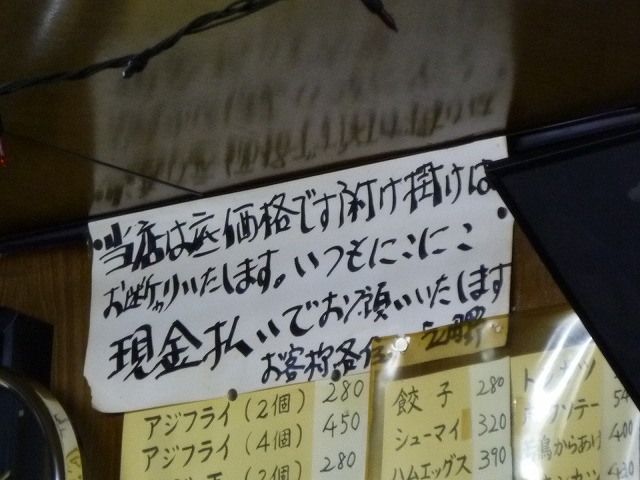 当店は底価格です附け掛けは
お断りいたします。いつもにこにこ
現金払いでお願いいたします
お客様各位
アジフライ(2個) 280
アジフライ(4個) 450
(2個) 280
餃子 280
シューマイ 320
ハムエッグス 390
鶏からあげ 400